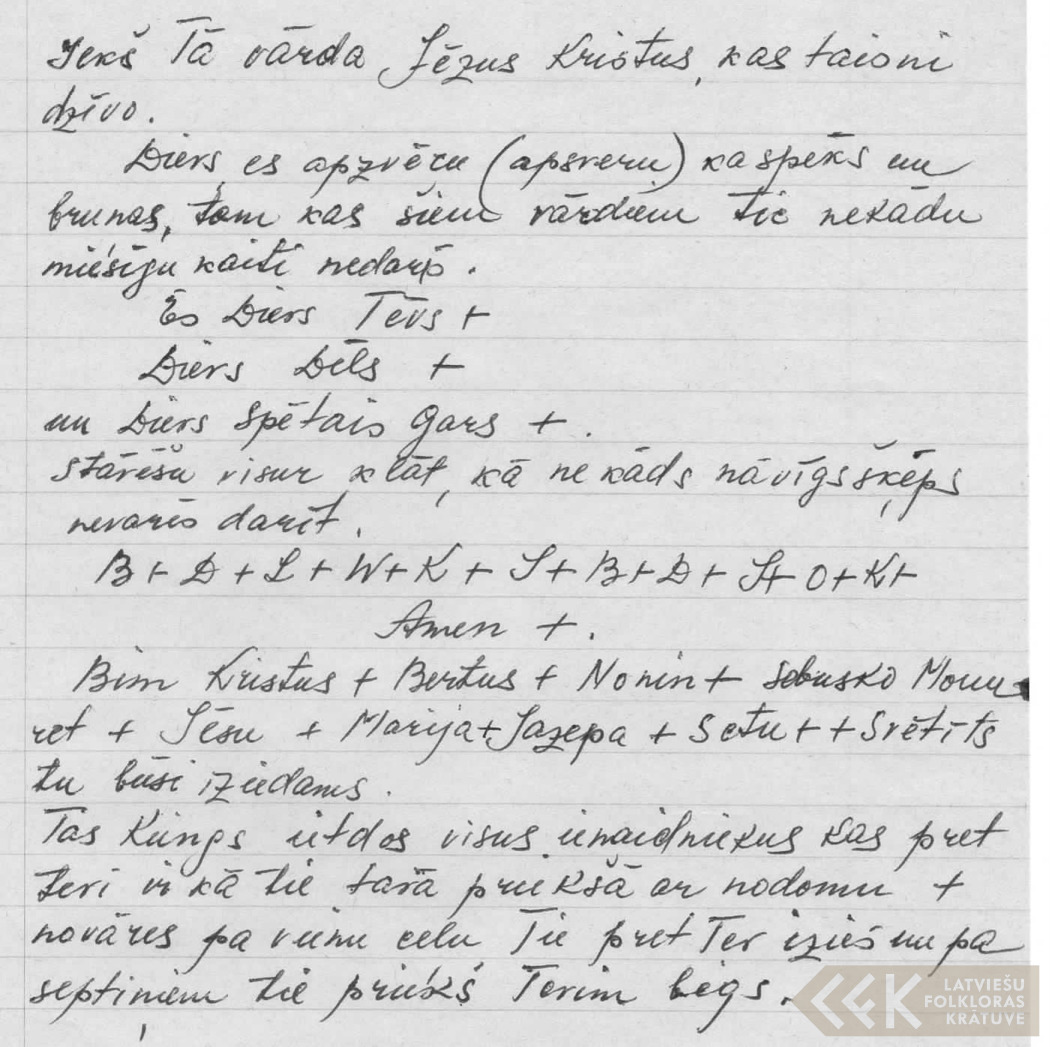 Iekš Tā vārda Jēzus Kristus, kas taisni
dzīvo.
Dievs, es apzvēru (apsveru) ka spēks un
brunas, tam kas šiem vārdiem tic nekādu
miesīgu kaiti nedarīs.
Es Dievs Tēvs +
Dievs Dēls +
un Dievs Spētais Gars +.
stāvēšu visur klāt, kā nekāds nāvīgs šķēps
nevarēs darīt.
B + D + L + W + K + J + B + D + J + O + K +
Amen +.
Bim Kristus + Bertus + Nonin + Sebusko Mouu
ret + Jēsu + Marija + Jazepa + Setu + + Svētīts
tu būsi iziedams.
Tas Kungs ietdos visus ienaidniekus kas pret
Tevi ir kā tie tavā priekšā ar nodomu +
novāres pa vienu ceļu Tie pret Tev izies un pa
septiņiem tie priekš Tevim bēgs.
LATVIEŠU
FOLKLORAS
KRĀTUVE